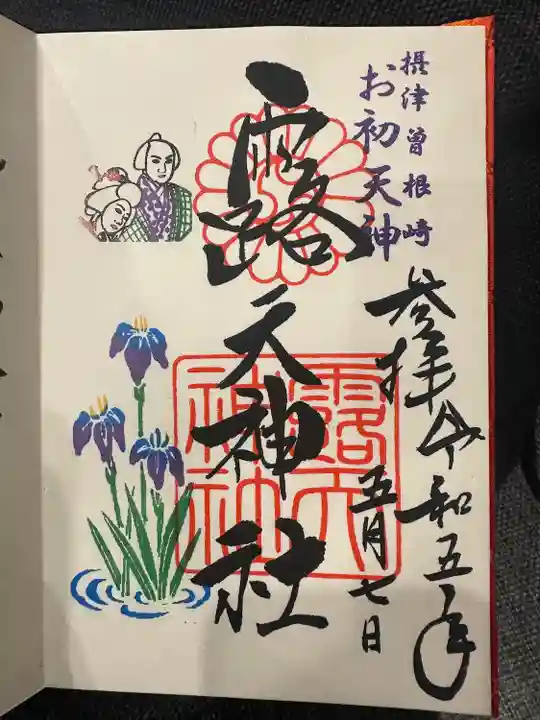 摂津曽根崎
お初天神
参拝 令和五年
五月七日
露天神社
露天
神社